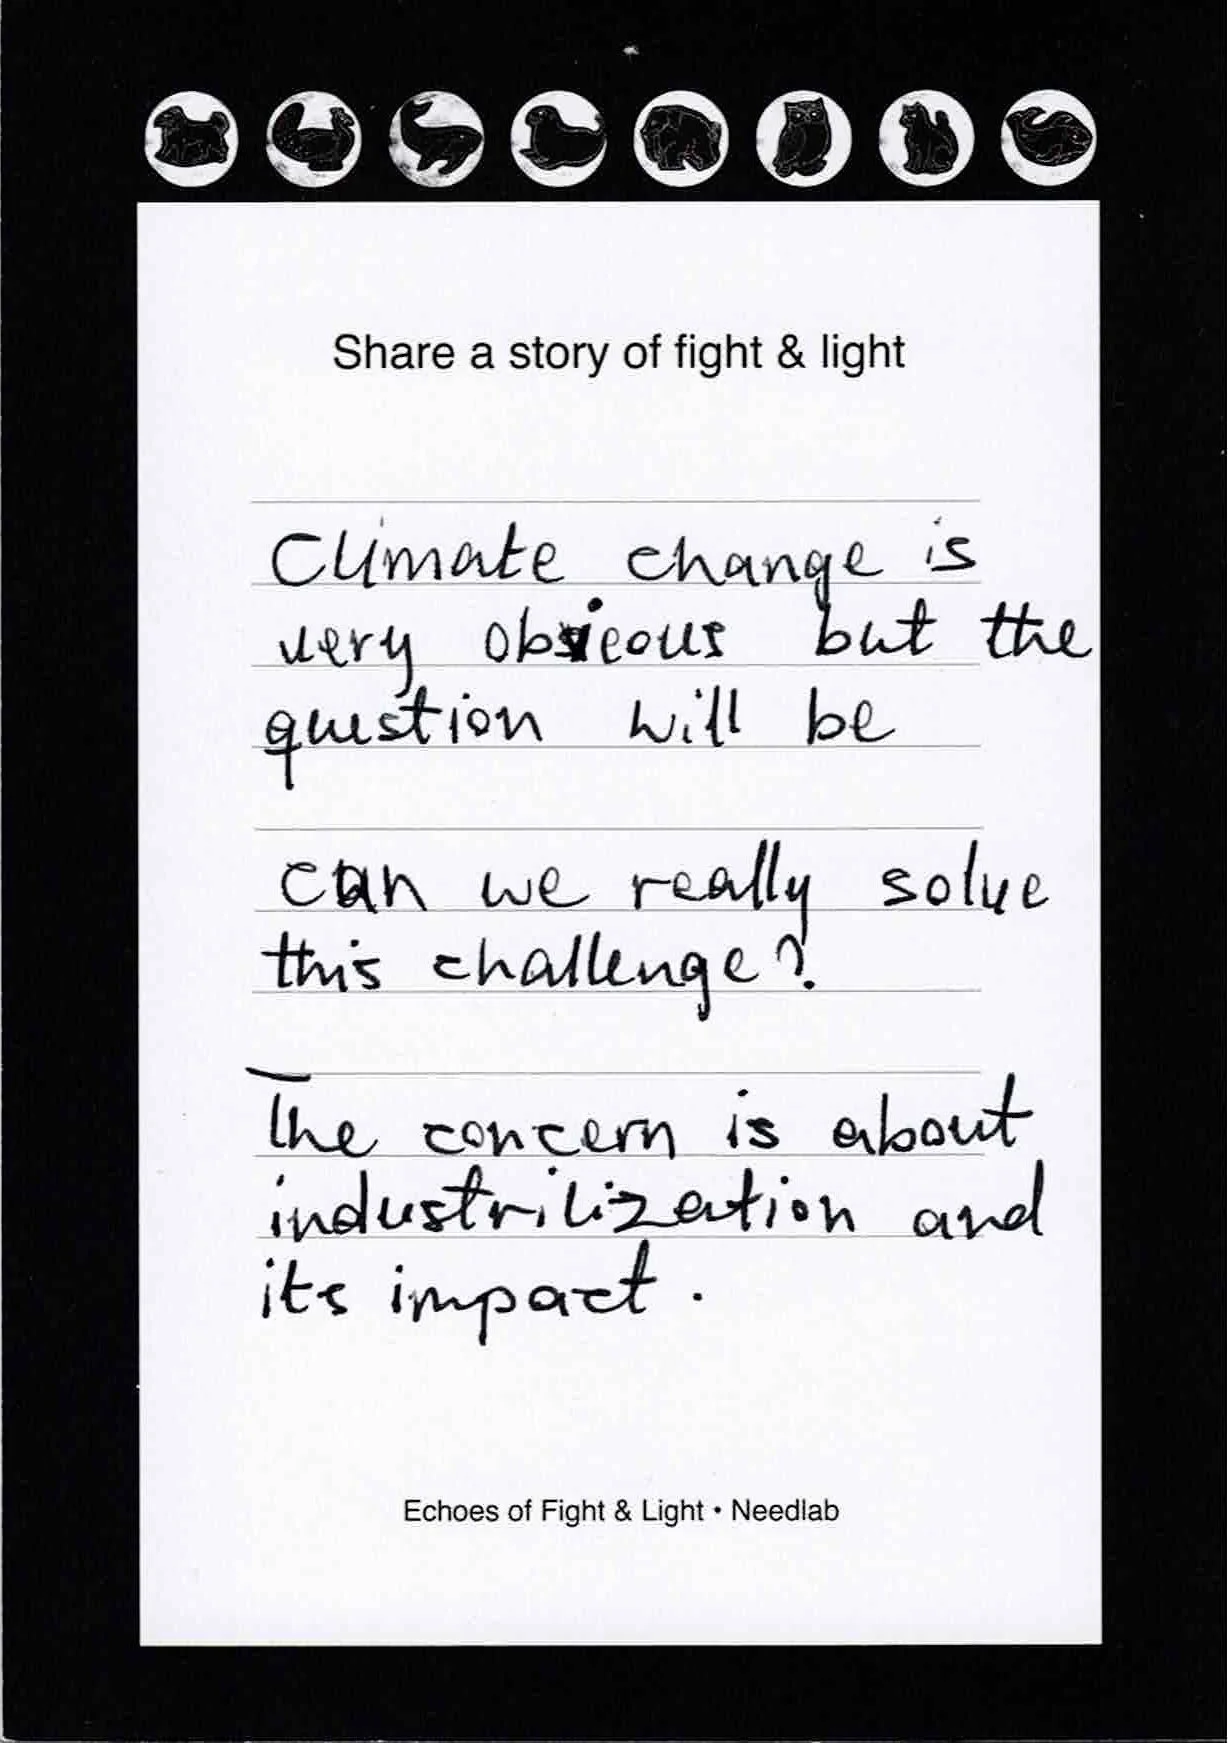 Share a story of fight & light
Climate change is
very obvieous but the
question will be
can we really solve
this challenge?
The concern is about
industrilization and
its impact.
Echoes of Fight & Light • Needlab